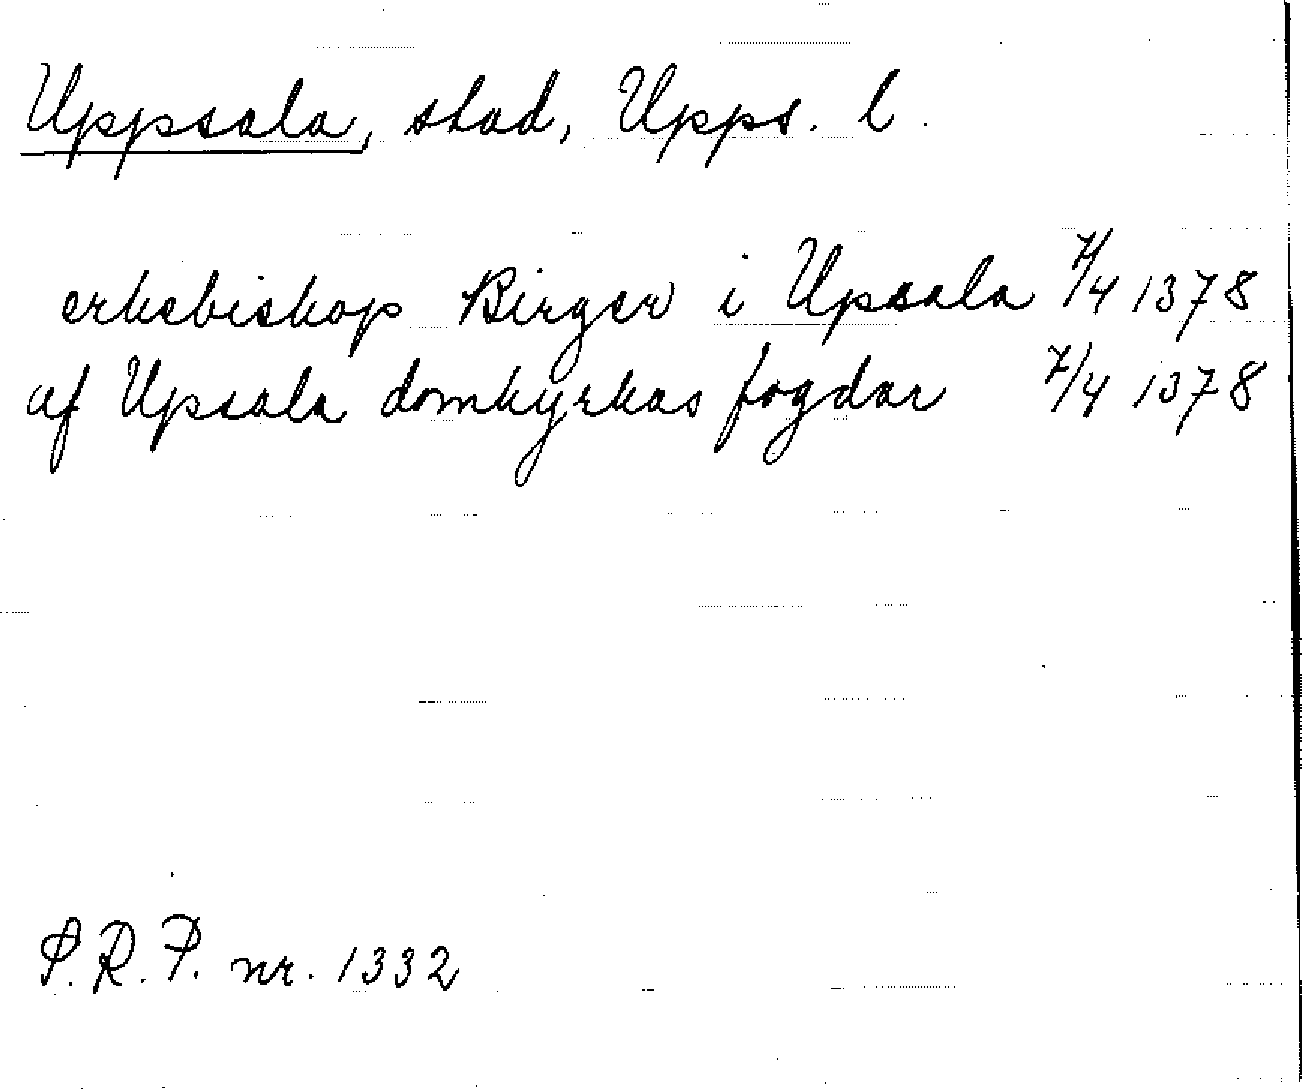 Uppsala, stad, Upps. l.
erkebiskop Birger i Upsala 7/4 1378
af Upsala domkyrkas fogdar 7/4 1378
P.R.P. nr. 1332